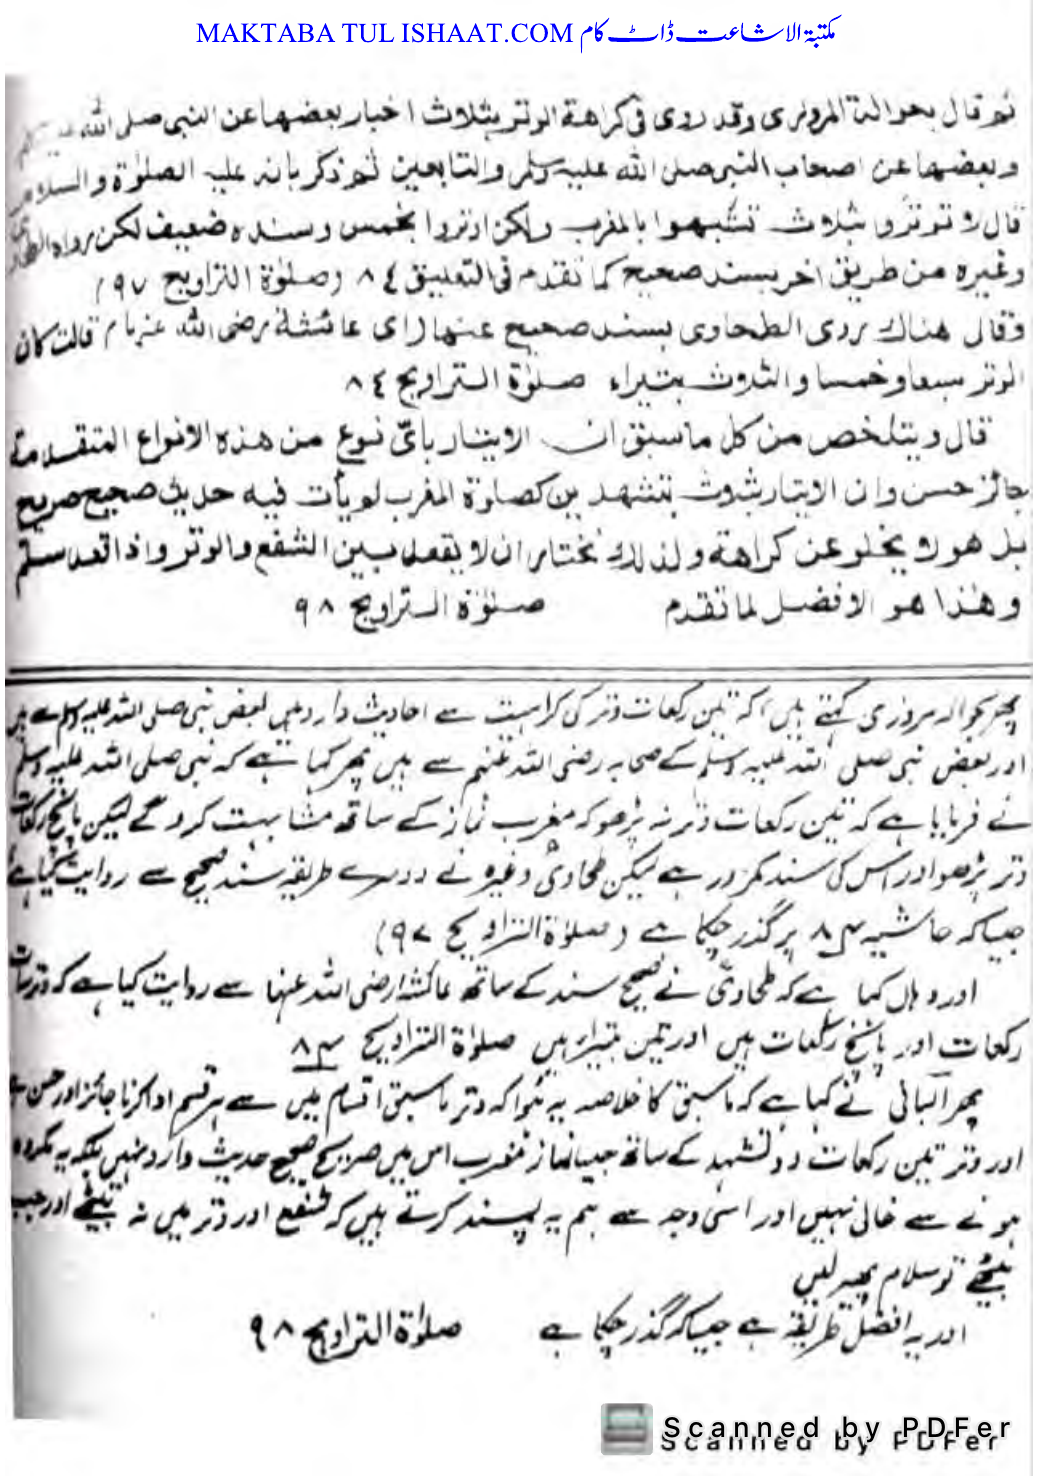 MAKTABA TUL ISHAAT.COM مکتبۃ الاشاعت ڈاٹ کام
ثم قال بحوالة المروزى وقد روى فى كراهة الوتر بثلاث اخبار بعضها عن النبى صلى الله عليه
وبعضها عن اصحاب النبى صلى الله عليه وسلم والتابعين ثم ذكر بانه عليه الصلوٰة والسلام
قال لا توتروا بثلاث تشبهوا بالمغرب ولكن اوتروا بخمس وسنده ضعيف لكن رواه الطحاوى
وغيره من طريق اخر بسند صحيح كما تقدم فى التعليق ٨٤ (صلوٰة التراويح ٩٧)
وقال هناك روى الطحاوى بسند صحيح عنها (اى عائشة رضى الله عنها) قالت كان
الوتر سبعا وخمسا والثلاث بتيراء صلوٰة التراويح ٨٤
قال ويتلخص من كل ما سبق ان الايتار باىّ نوع من هذه الانواع المتقدمة
جائز حسن وان الايتار بثلاث بتشهدين كصلوٰة المغرب لم يأت فيه حديث صحيح صريح
بل هو لا يخلو عن كراهة ولذلك نختار ان لا يقعد بين الشفع والوتر واذا قعد سلم
وهٰذا هو الافضل لما تقدم صلوٰة التراويح ٩٨
پھر بحوالہ مروزی کہتے ہیں کہ تین رکعات وتر کی کراہت سے احادیث وارد ہیں بعض نبی صلی اللہ علیہ وسلم سے ہیں
اور بعض نبی صلی اللہ علیہ وسلم کے صحابہ رضی اللہ عنہم سے ہیں پھر کہا ہے کہ نبی صلی اللہ علیہ وسلم
نے فرمایا ہے کہ تین رکعات وتر نہ پڑھو کہ مغرب نماز کے ساتھ مشابہت کرو گے لیکن پانچ رکعات
وتر پڑھو اور اس کی سند کمزور ہے لیکن طحاویؒ وغیرہ نے دوسرے طریقہ سند صحیح سے روایت کیا ہے
جیسا کہ حاشیہ ۸۴ پر گذر چکا ہے (صلوٰۃ التراویح ۹۷)
اور وہاں کہا ہے کہ طحاویؒ نے صحیح سند کے ساتھ عائشہ رضی اللہ عنہا سے روایت کیا ہے کہ وتر سات
رکعات اور پانچ رکعات ہیں اور تین بتیراء ہیں صلوٰۃ التراویح ۸۴
پھر البانی نے کہا ہے کہ ماسبق کا خلاصہ یہ ہوا کہ وتر ماسبق اقسام میں سے ہر قسم ادا کرنا جائز اور حسن ہے
اور وتر تین رکعات دو تشہد کے ساتھ جیسا نماز مغرب اس میں صریح صحیح حدیث وارد نہیں بلکہ یہ مکروہ
ہونے سے خالی نہیں اور اسی وجہ سے ہم یہ پسند کرتے ہیں کہ شفع اور وتر میں نہ بیٹھے اور جب
بیٹھے تو سلام پھیر لیں
اور یہ افضل طریقہ ہے جیسا کہ گذر چکا ہے صلوٰۃ التراویح ۹۸
Scanned by PDFer